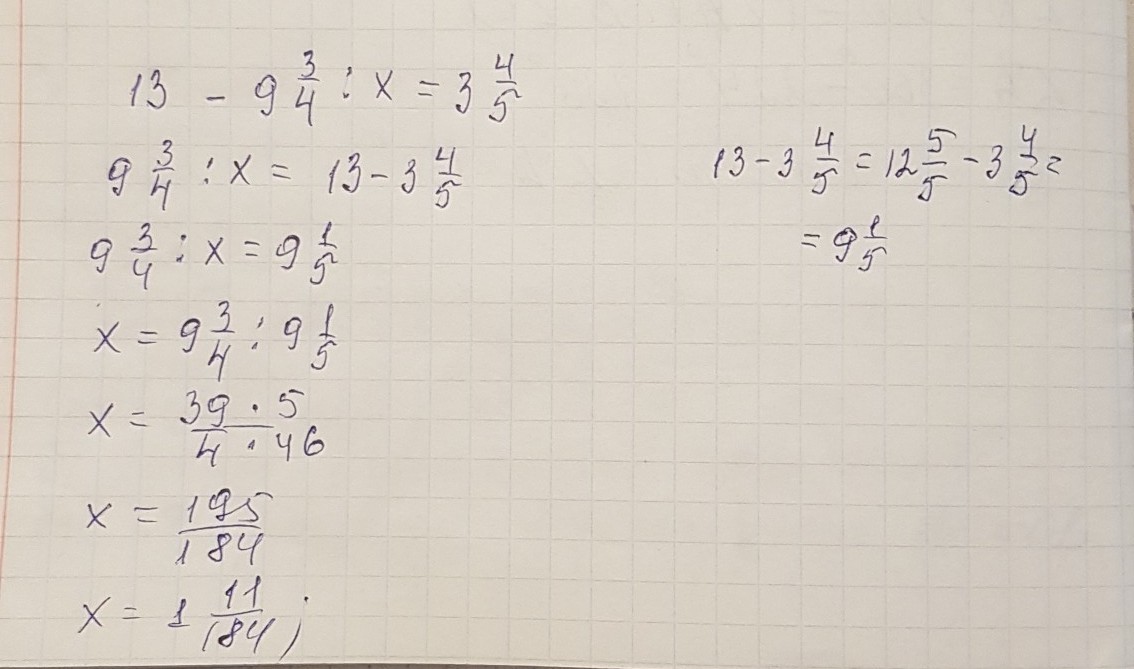 13 - 9 3/4 : x = 3 4/5
9 3/4 : x = 13 - 3 4/5
9 3/4 : x = 9 1/5
x = 9 3/4 : 9 1/5
x = 39 · 5 / 4 · 46
x = 195/184
x = 1 11/184;
13 - 3 4/5 = 12 5/5 - 3 4/5 =
= 9 1/5